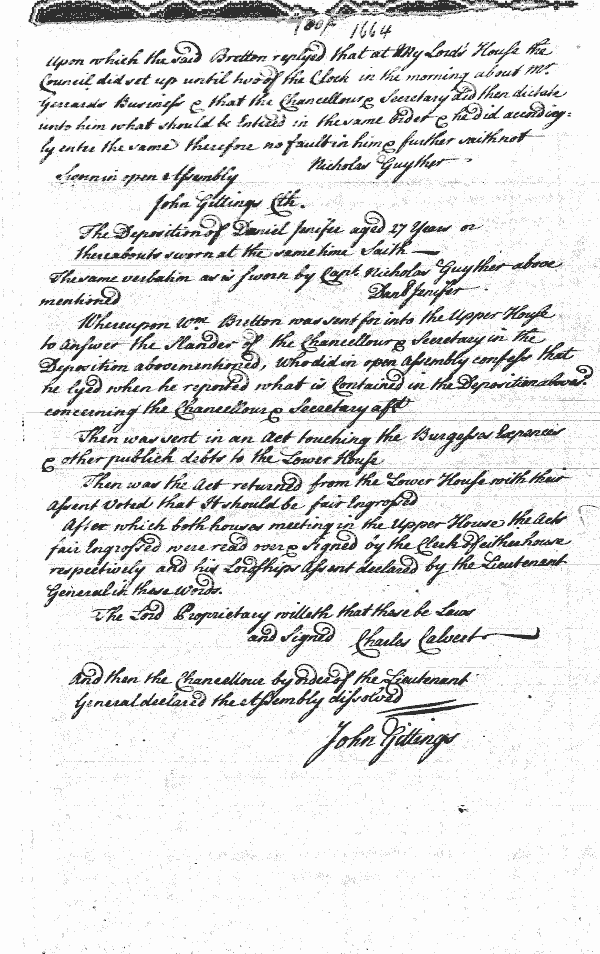 1664
Upon which the said Bretton replyed that at My Lord's House the
Council did set up until two of the Clock in the morning about Mr.
Gerrards Business & that the Chancellour & Secretary did then dictate
unto him what should be Entred in the same order & he did according=
ly enter the same therefore no fault in him & further saith not
Nicholas Guyther
Sworn in open Assembly
John Gittings Clk.
The Deposition of Daniel Jenifer aged 27 Years or
thereabouts sworn at the same time Saith
The same verbatim as is sworn by Capt. Nicholas Guyther above
mentioned
Danl Jenifer
Whereupon Wm Bretton was sent for into the Upper House
to answer the Slander of the Chancellour & Secretary in the
Deposition abovementioned, Who did in open Assembly confess that
he lyed when he reported what is Contained in the Deposition abovesd.
concerning the Chancellour & Secretary afd
Then was sent in an Act touching the Burgesses Expences
& other publick debts to the Lower House
Then was the Act returned from the Lower House with their
Assent Voted that It should be fair Engrossed
After which both houses meeting in the Upper House the Acts
fair Engrossed were read over & signed by the Clerk of either house
respectively and his Lordships Assent declared by the Lieutenant
General in these Words.
The Lord Proprietary willeth that these be Laws
and signed Charles Calvert
And then the Chancellour by order of the Lieutenant
General declared the Assembly dissolved
John Gittings